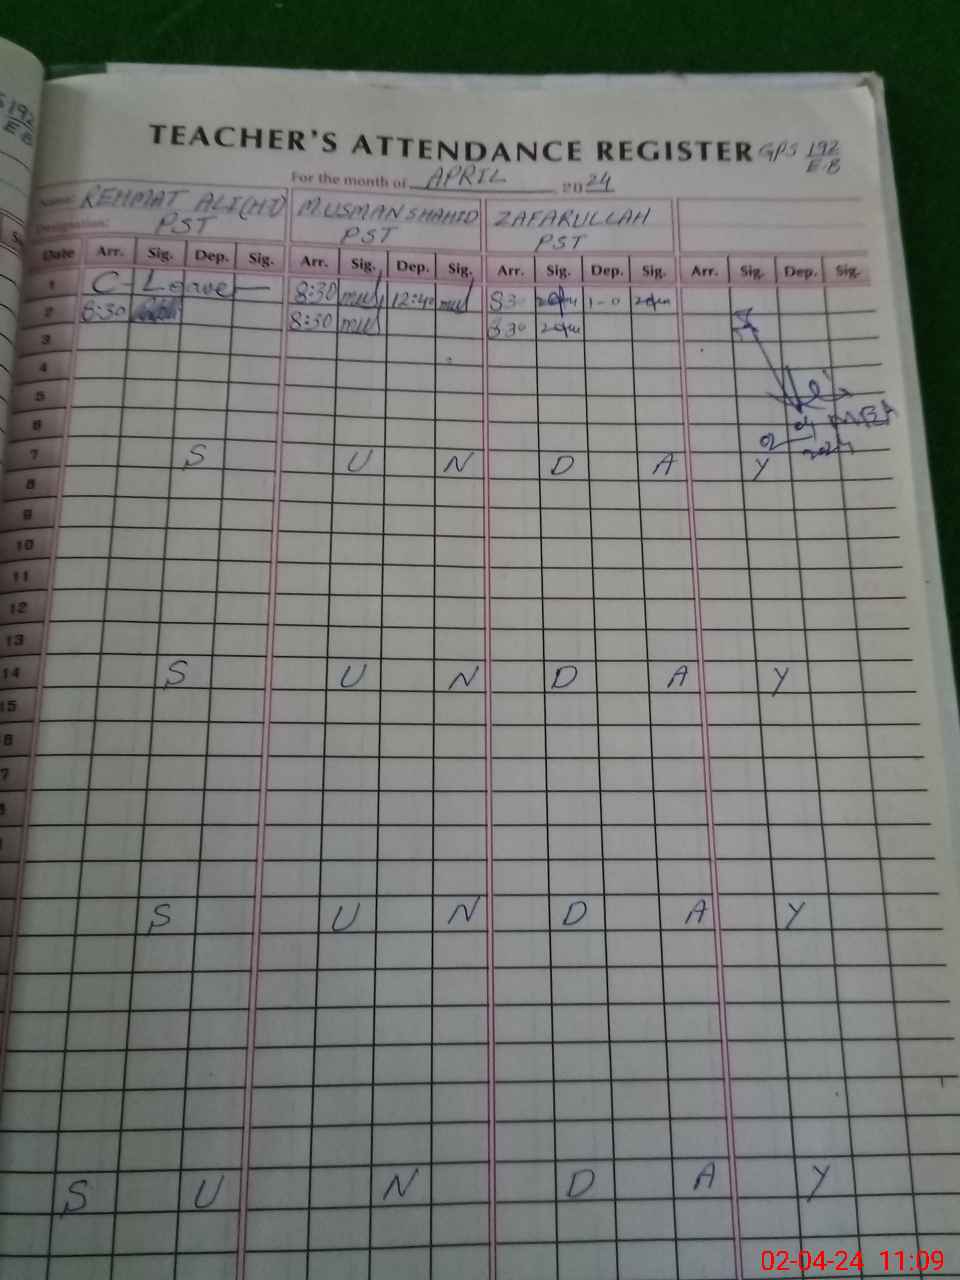 TEACHER'S ATTENDANCE REGISTER GPS 192
E.B
For the month of APRIL 2024
Name: REHMAT ALI (HT) M.USMAN SHAHID ZAFARULLAH
Designation: PST PST PST
Date Arr. Sig. Dep. Sig. Arr. Sig. Dep. Sig. Arr. Sig. Dep. Sig. Arr. Sig. Dep. Sig.
1 C-Leave 8:30 12:40 8:30 1-0
2 8:30 8:30 8:30
3
4
5
6 MEA
02 04 2024
7 S U N D A Y
8
9
10
11
12
13
14 S U N D A Y
15
S U N D A Y
S U N D A Y
02-04-24 11:09